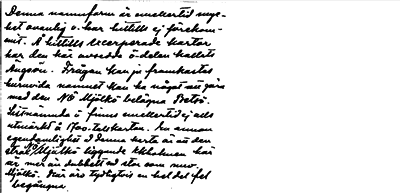 Denna namnform är emellertid myc-
ket ovanlig o. har hittills ej förekom-
mit. Å hittills excerperade kartor
har den här avsedda ö-delen kallats
Ängsön. Frågan kan ju framkastas
huruvida namnet kan ha något att göra
med den NÖ Mjölkö belägna Betsö.
Sistnämnda ö finns emellertid ej alls
utmärkt å 1700-talskartan. En annan
egendomlighet å denna karta är att den
Mjölkö liggande Ekholmen här
är mer än dubbelt så stor som nuv.
Mjölkö. Här äro tydligtvis en hel del fel
begångna.